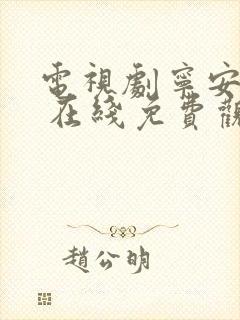 電視劇寧安
在綫免費觀
趙公明